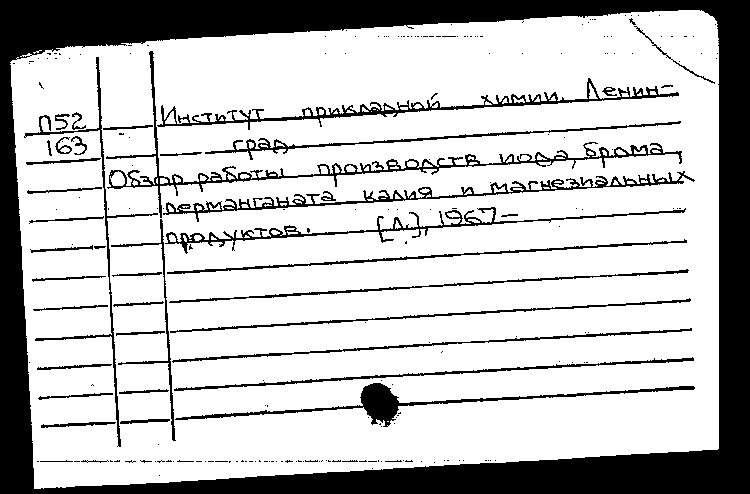 П52 Институт прикладной химии. Ленин-
163 град.
Обзор работы производств иода, брома,
перманганата калия и магнезиальных
продуктов. [Л.], 1967–